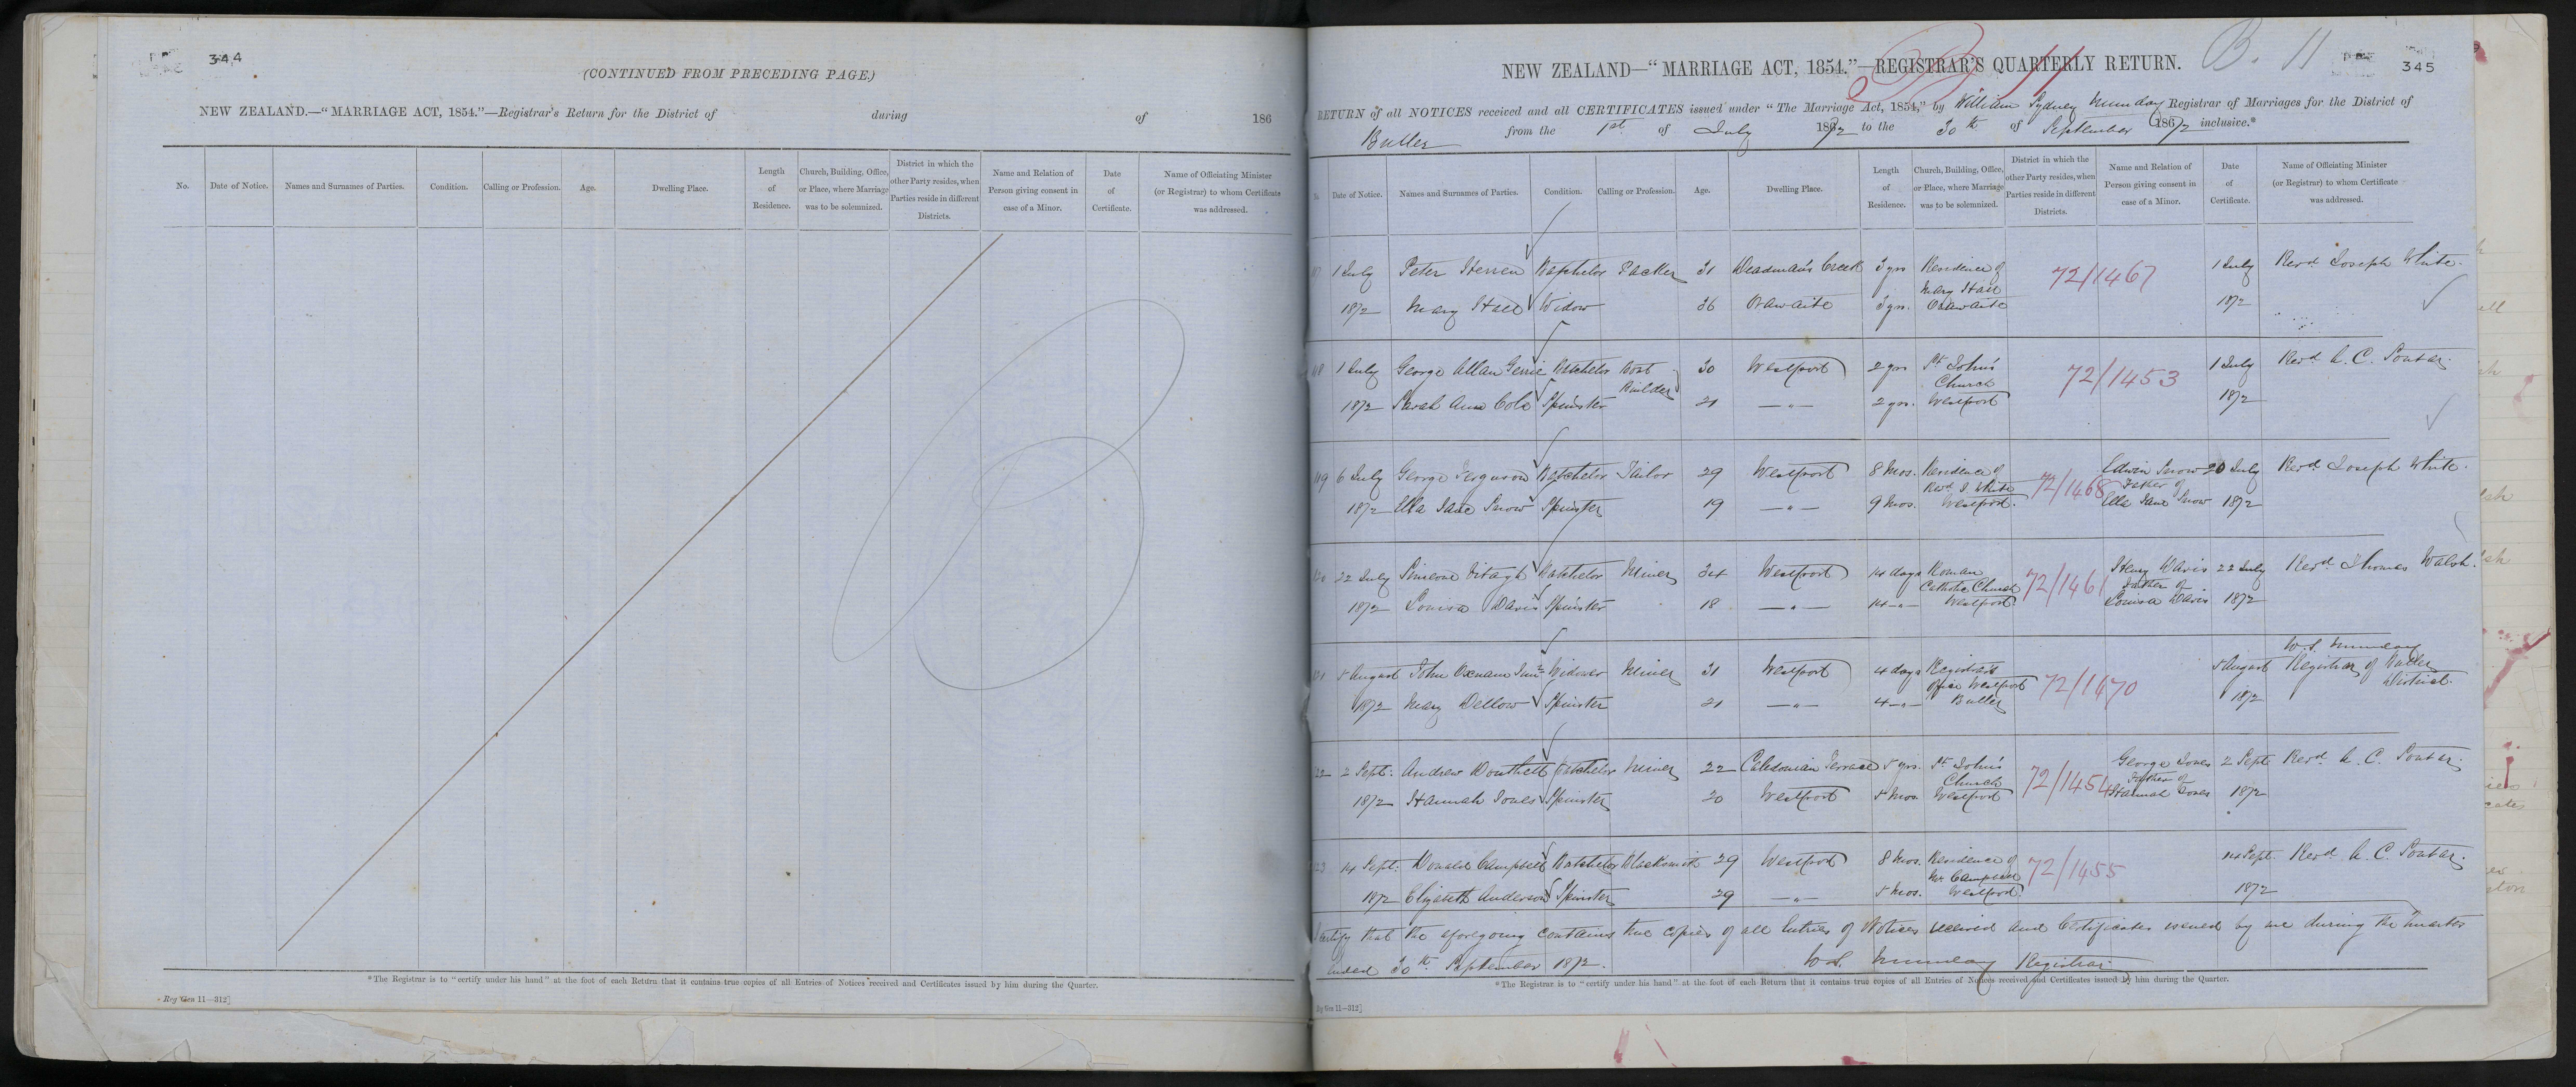 344
(CONTINUED FROM PRECEDING PAGE.)
NEW ZEALAND.—"MARRIAGE ACT, 1854."—Registrar's Return for the District of during of 186
No. Date of Notice. Names and Surnames of Parties. Condition. Calling or Profession. Age. Dwelling Place. Length of Residence. Church, Building, Office, or Place, where Marriage was to be solemnized. District in which the other Party resides, when Parties reside in different Districts. Name and Relation of Person giving consent in case of a Minor. Date of Certificate. Name of Officiating Minister (or Registrar) to whom Certificate was addressed.
*The Registrar is to "certify under his hand" at the foot of each Return that it contains true copies of all Entries of Notices received and Certificates issued by him during the Quarter.
Reg Gen 11—312]
B. 11
345
NEW ZEALAND—"MARRIAGE ACT, 1854."—REGISTRAR'S QUARTERLY RETURN.
RETURN of all NOTICES received and all CERTIFICATES issued under "The Marriage Act, 1854," by William Sydney Munday Registrar of Marriages for the District of
Buller from the 1st of July 1872 to the 30th of September 1872 inclusive.*
Date of Notice. Names and Surnames of Parties. Condition. Calling or Profession. Age. Dwelling Place. Length of Residence. Church, Building, Office, or Place, where Marriage was to be solemnized. District in which the other Party resides, when Parties reside in different Districts. Name and Relation of Person giving consent in case of a Minor. Date of Certificate. Name of Officiating Minister (or Registrar) to whom Certificate was addressed.
1 July Peter Batchelor Packer 31 Deadman's Creek 3 yrs Residence of 72/1467 1 July Revd Joseph White.
Mary Hall
1872 Mary Hall Widow 36 Orawaite 3 yrs. Orawaite 1872
1 July George Allan Batchelor Boat 30 Westport 2 yrs St John's 72/1453 1 July Revd A. C. Soutar.
Builder Church
1872 Sarah Ann Cole Spinster 21 —"— 2 yrs. Westport 1872
6 July George Ferguson Batchelor Tailor 29 Westport 8 Mos. Residence of 72/1468 Edwin Snow 20 July Revd Joseph White.
Revd J. White Father of
1872 Ella Jane Snow Spinster 19 —"— 9 Mos. Westport. Ella Jane Snow 1872
22 July Simeone Batchelor Miner 34 Westport 14 days Roman 72/1461 Henry Davis 22 July Revd Thomas Walsh.
Catholic Church Father of
1872 Louisa Davis Spinster 18 —"— 14 —"— Westport. Louisa Davis 1872
W.S. Munday
5 August John Oxnam Junr Widower Miner 31 Westport 4 days Registrar's 72/1470 5 August Registrar of Buller
Office Westport District.
1872 Mary Dellow Spinster 21 —"— 4 —"— Buller 1872
2 Sept. Andrew Douthett Batchelor Miner 22 Caledonian Terrace 5 yrs. St John's 72/1454 George Jones 2 Sept Revd A. C. Soutar.
Church Father of
1872 Hannah Jones Spinster 20 Westport 5 Mos. Westport Hannah Jones 1872
14 Sept. Donald Campbell Batchelor Blacksmith 29 Westport 8 Mos. Residence of 72/1455 14 Sept. Revd A. C. Soutar.
Mr. Campbell
1872 Elizabeth Anderson Spinster 29 —"— 5 Mos. Westport. 1872
I certify that the aforegoing contains true copies of all Entries of Notices received and Certificates issued by me during the Quarter
ended 30th September 1872. W.S. Munday Registrar
*The Registrar is to "certify under his hand" at the foot of each Return that it contains true copies of all Entries of Notices received and Certificates issued by him during the Quarter.
Reg Gen 11—312]